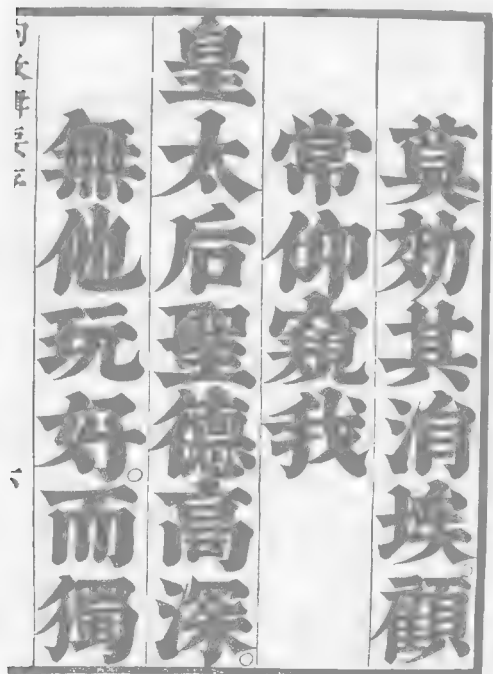 莫効其涓埃顧
常仰窺我
皇太后聖德高深
無他玩好而獨